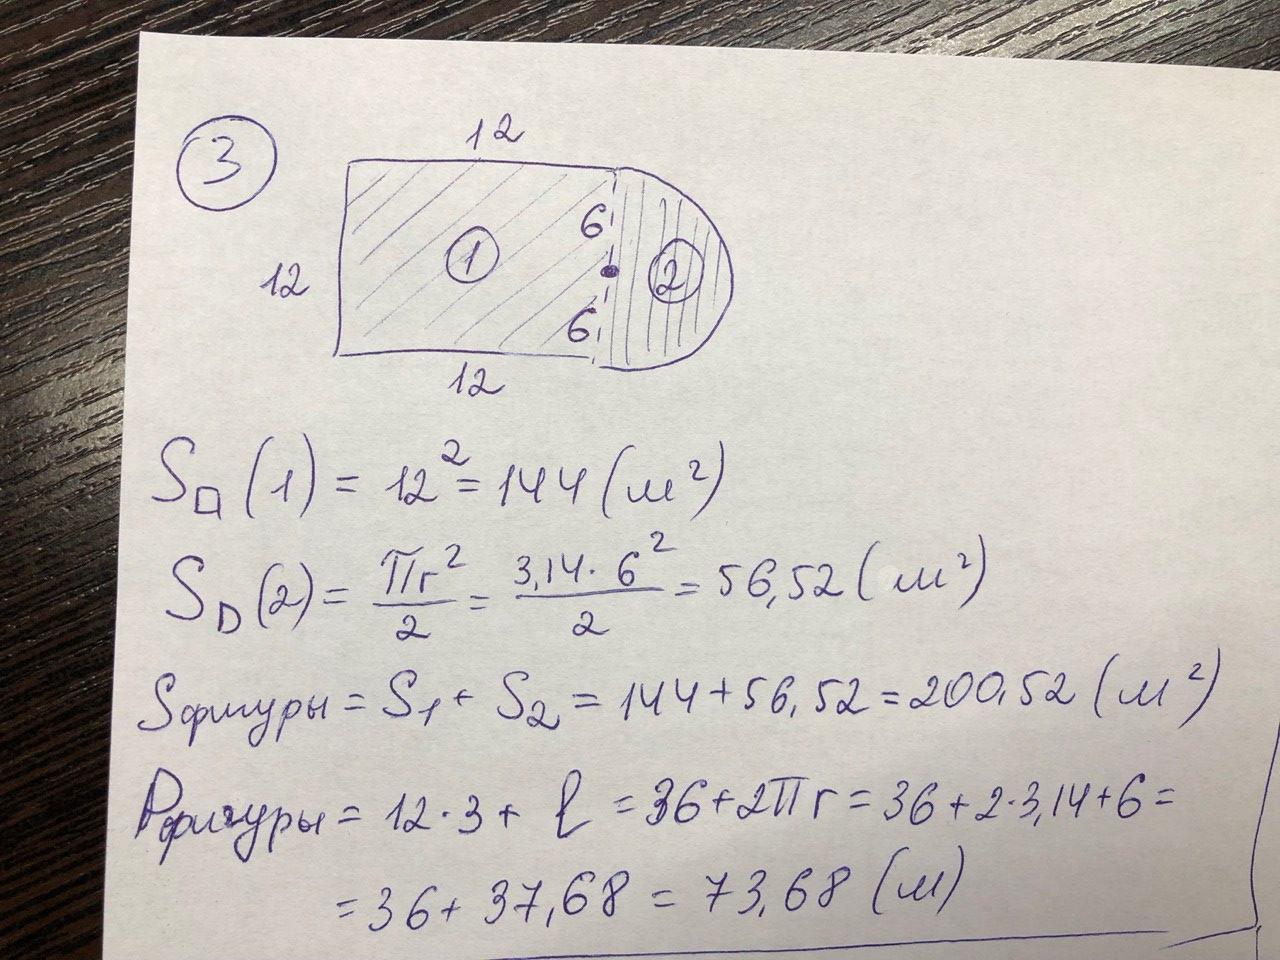 3
12
12
1
6
6
2
12
S□(1) = 12² = 144 (м²)
S_D(2) = πr²/2 = 3,14·6²/2 = 56,52 (м²)
Sфигуры = S₁ + S₂ = 144+56,52 = 200,52 (м²)
Pфигуры = 12·3 + l = 36+2πr = 36+2·3,14+6 =
= 36+ 37,68 = 73,68 (м)